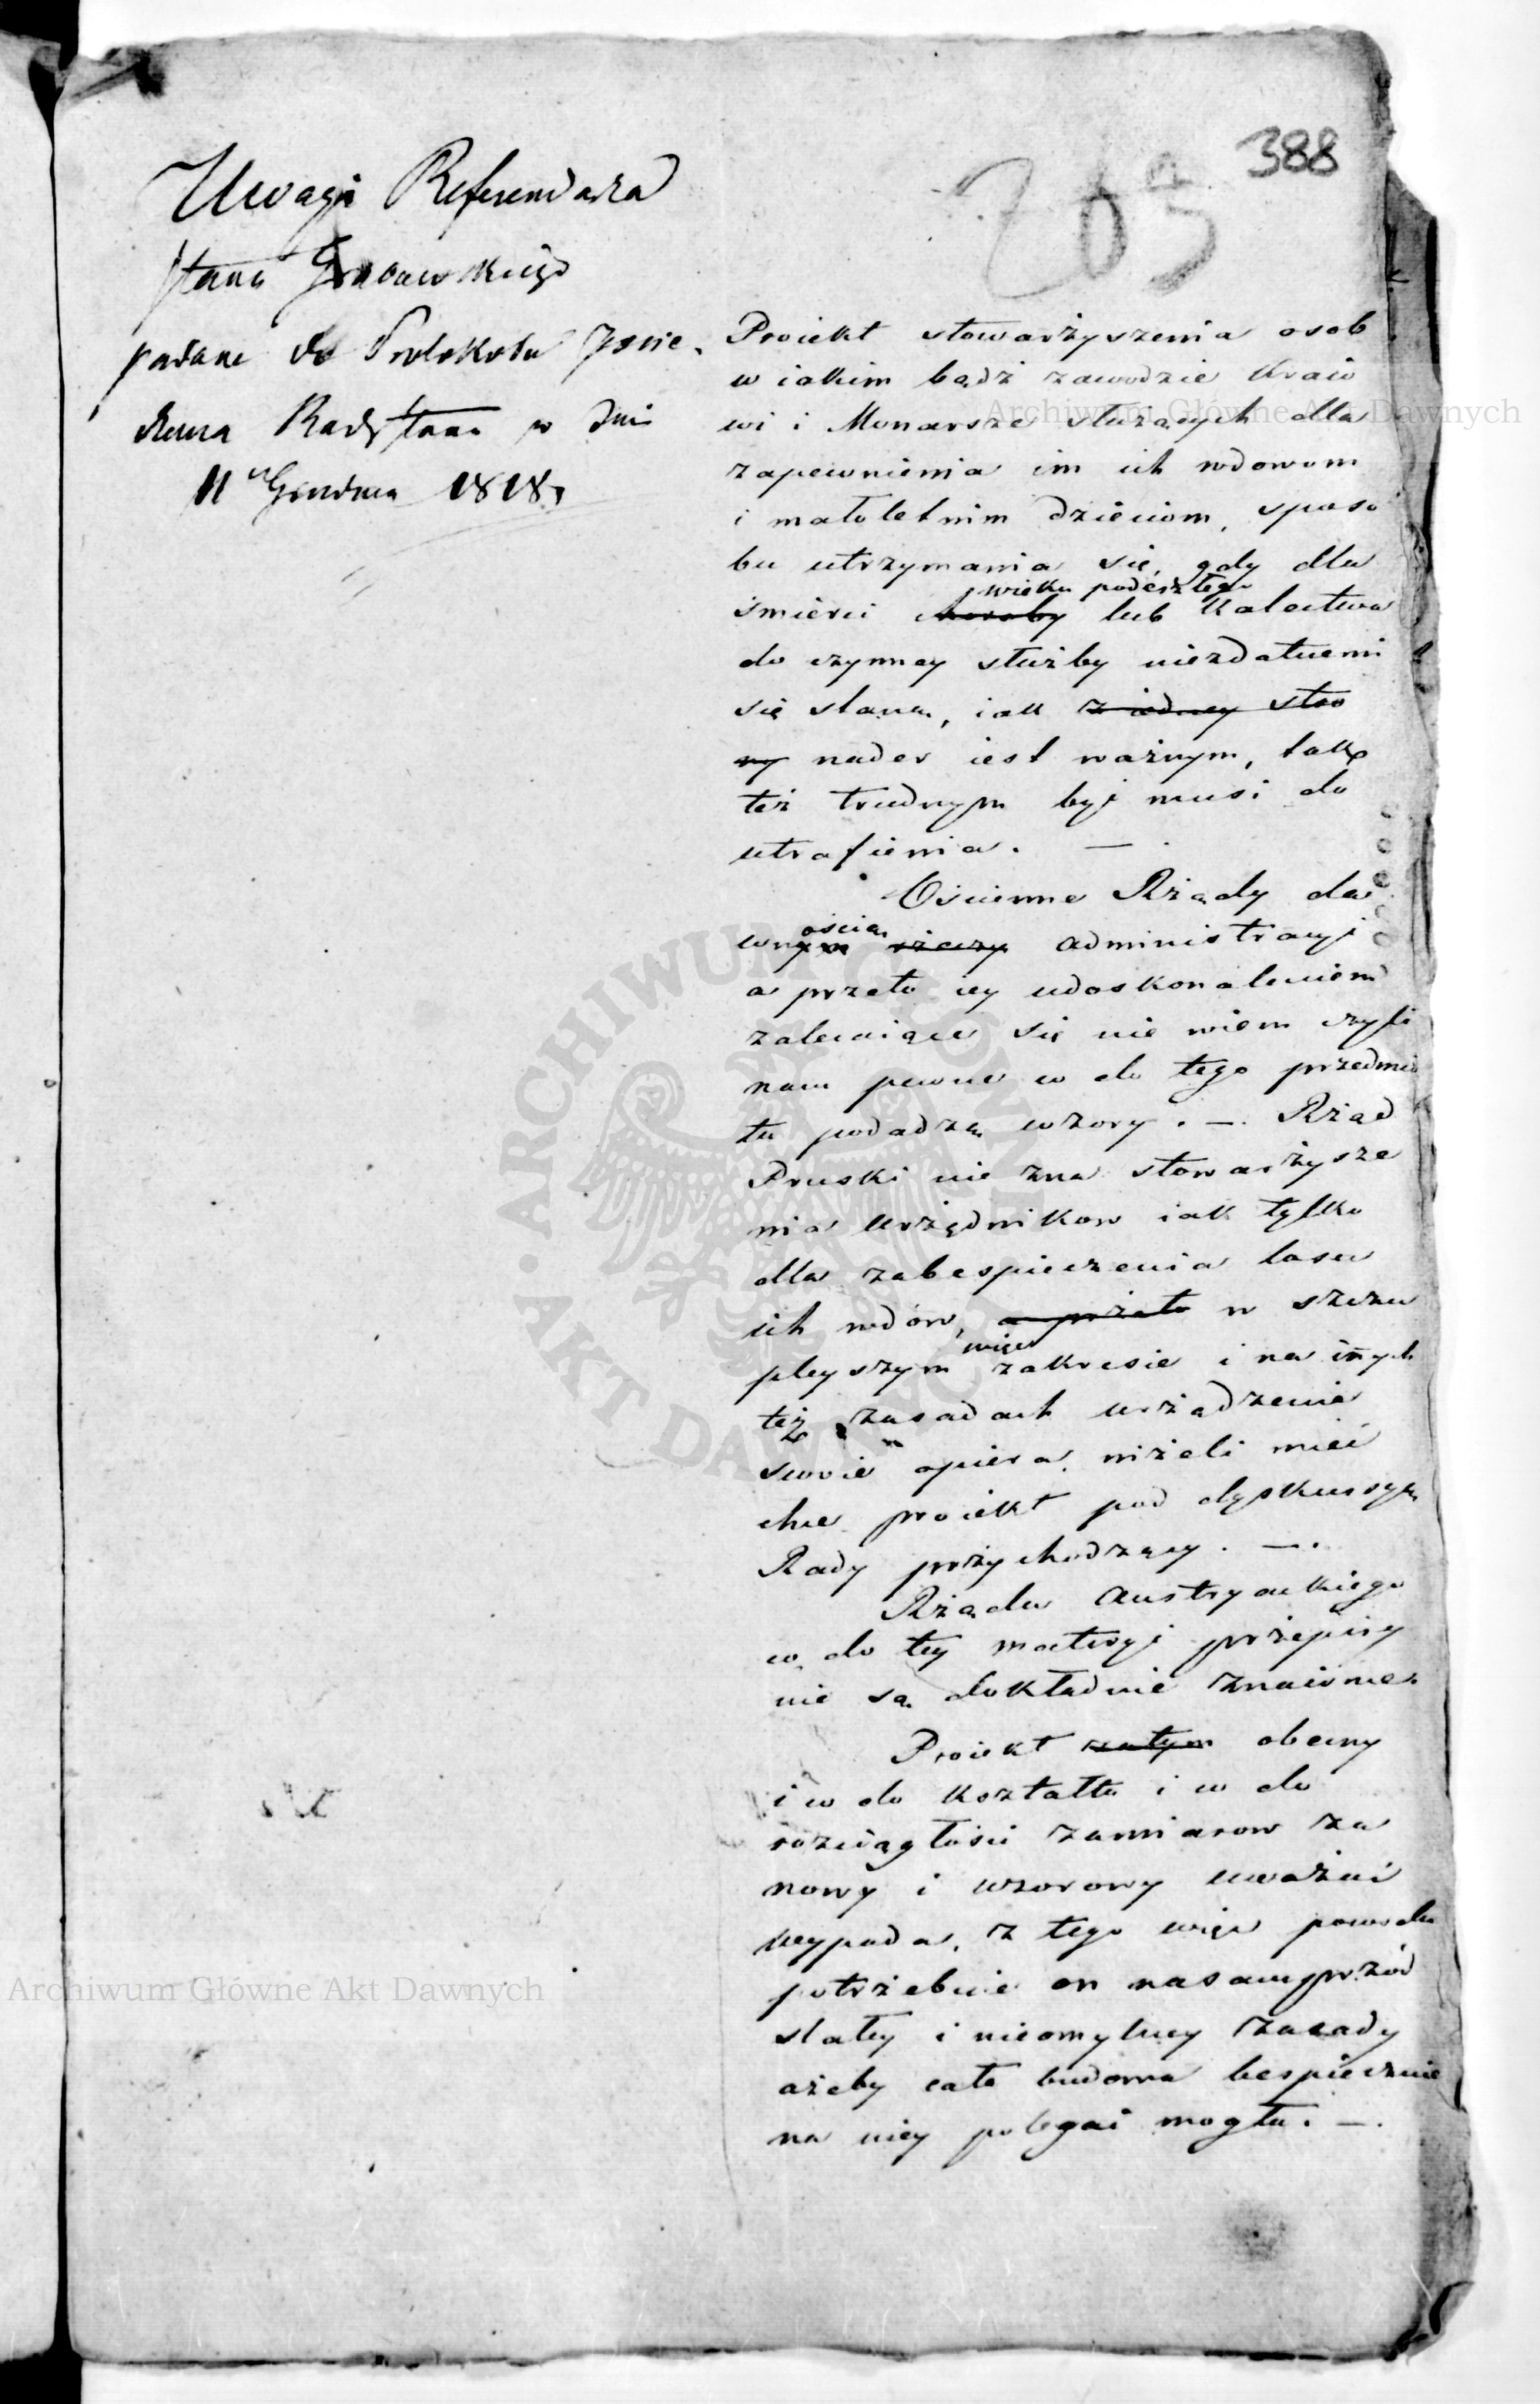 388
703
Uwagi Referendarza
Stanu Grabowskiego
podane do Protokołu Posie-
dzenia Rady Stanu w dniu
11 Grudnia 1818.
Proiekt stowarzyszenia osob
w iakim bądź zawodzie Kraio
wi i Monarsze służących dla
zapewnienia im ich wdowom
i małoletnim dzieciom, sposo
bu utrzymania się, gdy dla
wieku podeszłego
śmierci choroby lub kalectwa
do czynney służby niezdatnemi
się staną, iak z iedney stro
ny nader iest ważnym, tak
też trudnym być musi do
utrafienia. —
Ościenne Rządy da
ością
wnym rzeczy administracyi
a przeto iey udoskonaleniem
zalecaiące się nie wiem czyli
nam pewne co do tego przedmio
tu podadzą wzory. — Rząd
Pruski nie zna stowarzysze
nia urzędnikow iak tylko
dla zabespieczenia losu
ich wdów, a przeto w szczu
więc
pleyszym zakresie i na inych
też zasadach urządzenie
swoie opiera, niżeli mieć
chce proiekt pod dyskussyą
Rady przychodzący. —
Rządu Austryackiego
co do tey materyi przepisy
nie są dokładnie znaiome.
Proiekt zatym obecny
i co do kształtu i co do
rozciągłości zamiarow za
nowy i wzorowy uważać
wypada, z tego więc powodu
potrzebuie on nasamprzód
stałey i nieomylney zasady
ażeby cała budowa bespiecznie
na niey polegać mogła. —
Archiwum Główne Akt Dawnych
ARCHIWUM GŁÓWNE AKT DAWNYCH
Archiwum Główne Akt Dawnych